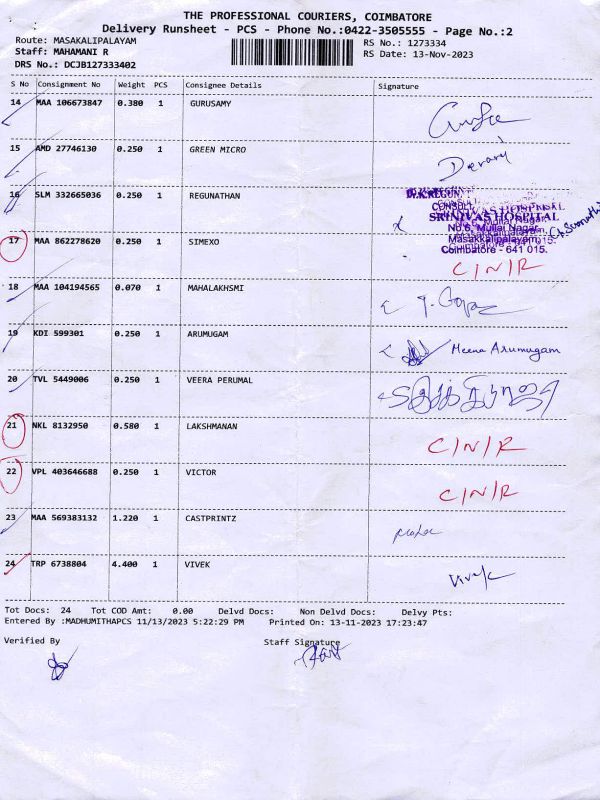 THE PROFESSIONAL COURIERS, COIMBATORE
Delivery Runsheet - PCS - Phone No.:0422-3505555 - Page No.:2
Route: MASAKALIPALAYAM RS No.: 1273334
Staff: MAHAMANI R RS Date: 13-Nov-2023
DRS No.: DCJB127333402
S No Consignment No Weight PCS Consignee Details Signature
14 MAA 106673847 0.380 1 GURUSAMY
15 AMD 27746130 0.250 1 GREEN MICRO
16 SLM 332665036 0.250 1 REGUNATHAN
SRINIVAS HOSPITAL
No.6, Mullai Nagar,
Masakkalipalayam,
Coimbatore - 641 015.
17 MAA 862278620 0.250 1 SIMEXO C/N/R
18 MAA 104194565 0.070 1 MAHALAKHSMI
19 KDI 599301 0.250 1 ARUMUGAM Meena Arumugam
20 TVL 5449006 0.250 1 VEERA PERUMAL
21 NKL 8132950 0.580 1 LAKSHMANAN C/N/R
22 VPL 403646688 0.250 1 VICTOR C/N/R
23 MAA 569383132 1.220 1 CASTPRINTZ
24 TRP 6738804 4.400 1 VIVEK Vivek
Tot Docs: 24 Tot COD Amt: 0.00 Delvd Docs: Non Delvd Docs: Delvy Pts:
Entered By :MADHUMITHAPCS 11/13/2023 5:22:29 PM Printed On: 13-11-2023 17:23:47
Verified By Staff Signature